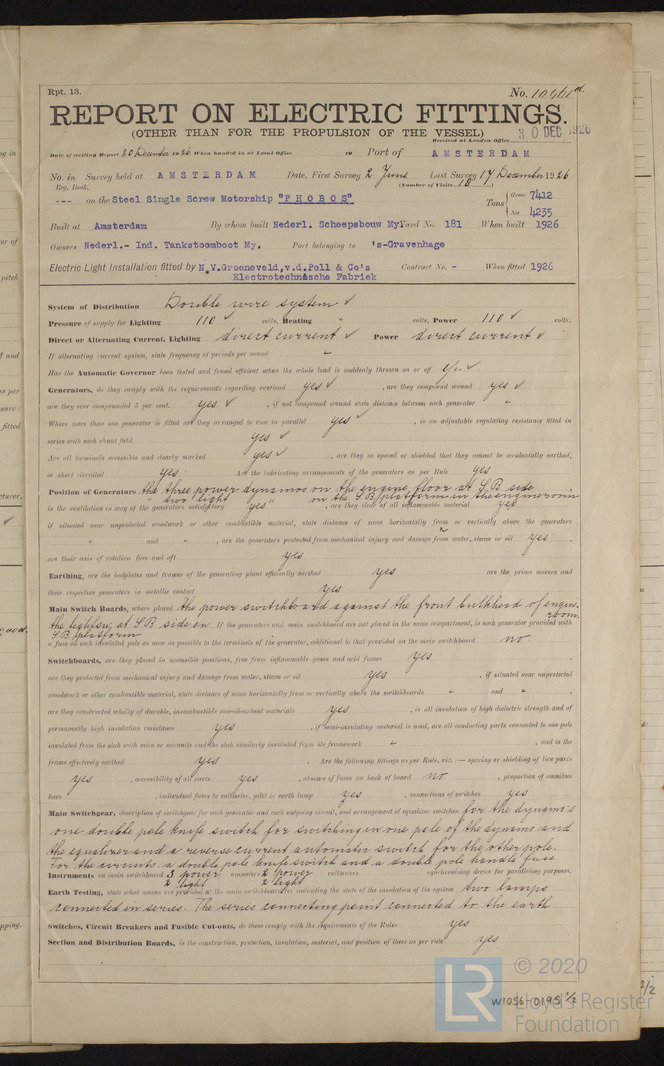 Rpt. 13.
No. 10461d.
REPORT ON ELECTRIC FITTINGS.
(OTHER THAN FOR THE PROPULSION OF THE VESSEL)
Received at London Office 30 DEC 1926
Date of writing Report 20 December 1926 When handed in at Local Office 19 Port of AMSTERDAM
No. in Survey held at AMSTERDAM Date, First Survey 2 June Last Survey 17 December 1926
Reg. Book. (Number of Visits 18)
--- on the Steel Single Screw Motorship "PHOBOS" Tons Gross 7412
Net 4235
Built at Amsterdam By whom built Nederl. Scheepsbouw My Yard No. 181 When built 1926
Owners Nederl.- Ind. Tankstoomboot My. Port belonging to 's-Gravenhage
Electric Light Installation fitted by N.V.Groeneveld,v.d.Poll & Co's Contract No. - When fitted 1926
Electrotechnische Fabriek
System of Distribution Double wire system ✓
Pressure of supply for Lighting 110 ✓ volts, Heating " volts, Power 110 ✓ volts.
Direct or Alternating Current, Lighting direct current ✓ Power direct current ✓
If alternating current system, state frequency of periods per second "
Has the Automatic Governor been tested and found efficient when the whole load is suddenly thrown on or off ✓
Generators, do they comply with the requirements regarding overload yes ✓, are they compound wound yes ✓
are they over compounded 5 per cent. yes ✓, if not compound wound state distance between each generator "
Where more than one generator is fitted are they arranged to run in parallel yes ✓, is an adjustable regulating resistance fitted in
series with each shunt field yes ✓
Are all terminals accessible and clearly marked yes ✓, are they so spaced or shielded that they cannot be accidentally earthed,
or short circuited yes Are the lubricating arrangements of the generators as per Rule yes
Position of Generators the three power dynamos on the engine floor at S.B. side
" two light " on the S.B. platform in the engineroom
is the ventilation in way of the generators satisfactory yes, are they clear of all inflammable material yes
if situated near unprotected woodwork or other combustible material, state distance of same horizontally from or vertically above the generators
" and ", are the generators protected from mechanical injury and damage from water, steam or oil yes,
are their axis of rotation fore and aft yes
Earthing, are the bedplates and frames of the generating plant efficiently earthed yes are the prime movers and
their respective generators in metallic contact yes
Main Switch Boards, where placed the power switchboard against the front bulkhead of engine-
room.
the light sw. at S.B. side on If the generators and main switchboard are not placed in the same compartment, is each generator provided with
S B platform
a fuse on each insulated pole as near as possible to the terminals of the generator, additional to that provided on the main switchboard no.
Switchboards, are they placed in accessible positions, free from inflammable gases and acid fumes yes
are they protected from mechanical injury and damage from water, steam or oil yes, if situated near unprotected
woodwork or other combustible material, state distance of same horizontally from or vertically above the switchboards " and ",
are they constructed wholly of durable, incombustible non-absorbent materials yes, is all insulation of high dielectric strength and of
permanently high insulation resistance yes, if semi-insulating material is used, are all conducting parts connected to one pole
insulated from the slab with mica or micanite and the slab similarly insulated from its framework ", and is the
frame effectively earthed yes. Are the following fittings as per Rule, viz.:— spacing or shielding of live parts
yes, accessibility of all parts yes, absence of fuses on back of board no, proportion of omnibus
bars, individual fuses to voltmeter, pilot or earth lamp yes, connections of switches yes
Main Switchgear, description of switchgear for each generator and each outgoing circuit, and arrangement of equalizer switches for the dynamo's
one double pole knife switch for switching in one pole of the dynamo and
the equalizer and a reverse current automatic switch for the other pole.
For the circuits a double pole knife switch and a double pole handle fuse
Instruments on main switchboard 3 power ammeters 2 power voltmeters synchronising device for paralleling purposes.
2 light 2 light
Earth Testing, state what means are provided at the main switchboard for indicating the state of the insulation of the system two lamps
connected in series. The series connecting point connected to the earth
Switches, Circuit Breakers and Fusible Cut-outs, do these comply with the requirements of the Rules yes
Section and Distribution Boards, is the construction, protection, insulation, material, and position of these as per rule yes
W1056-0195 1/2
LR
© 2020
Lloyd's Register
Foundation